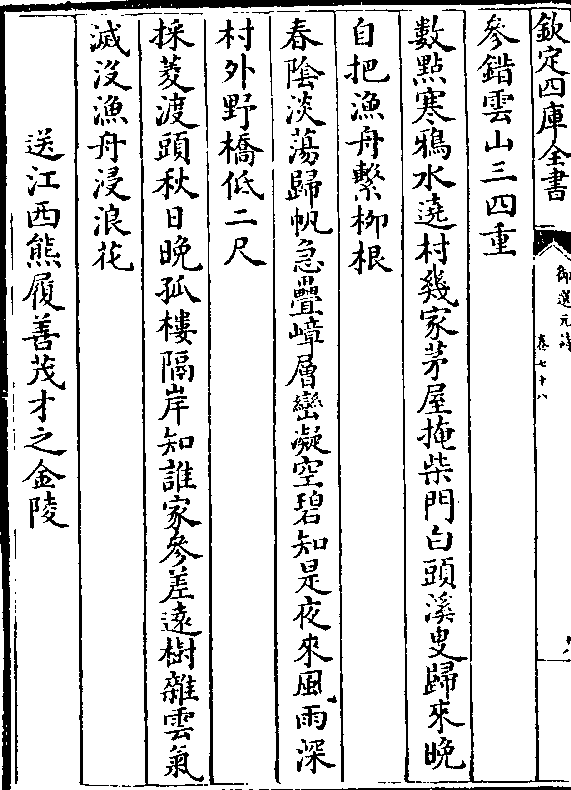 欽定四庫全書
御選元詩
卷七十八
參錯雲山三四重
數點寒鴉水遶村幾家茅屋掩柴門白頭溪叟歸來晚
自把漁舟繫柳根
春陰淡蕩歸帆急疊嶂層巒凝空碧知是夜來風雨深
村外野橋低二尺
採菱渡頭秋日晚孤樓隔岸知誰家參差遠樹雜雲氣
滅沒漁舟浸浪花
送江西熊履善茂才之金陵